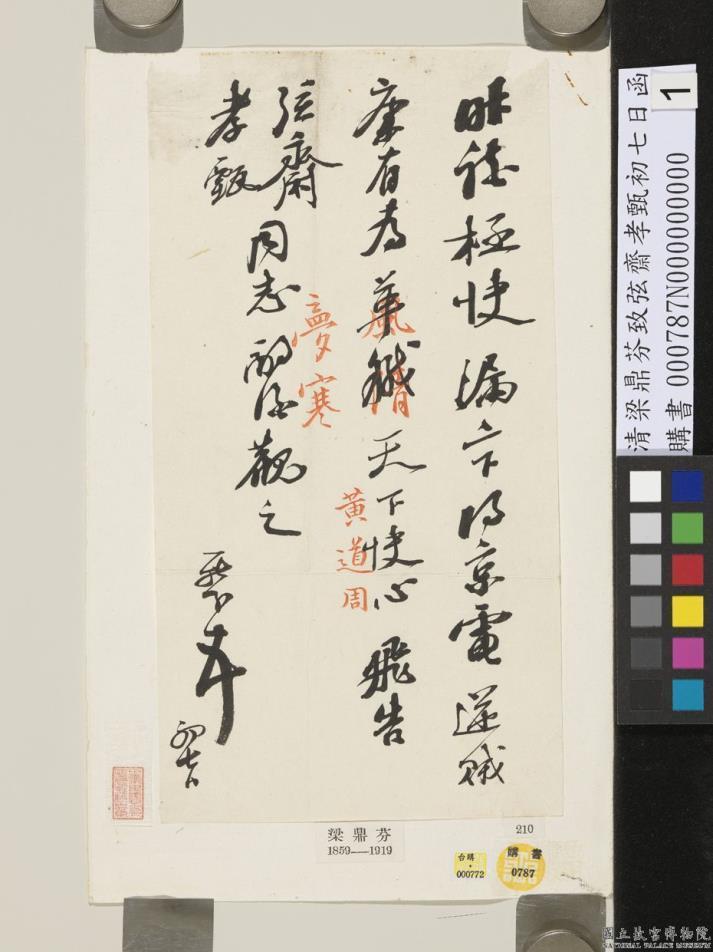 昨談極快 漏下得京電逆賊
康有為革職 天下快心 飛告
弦齋
孝甄
同志 觀之
初七日
夢寒
黃道周
梁鼎芬
1859—1919
210
台購
000772
購書
0787
1
清梁鼎芬致弦齋孝甄初七日函
購書 000787N000000000
國立故宮博物院
NATIONAL PALACE MUSEUM